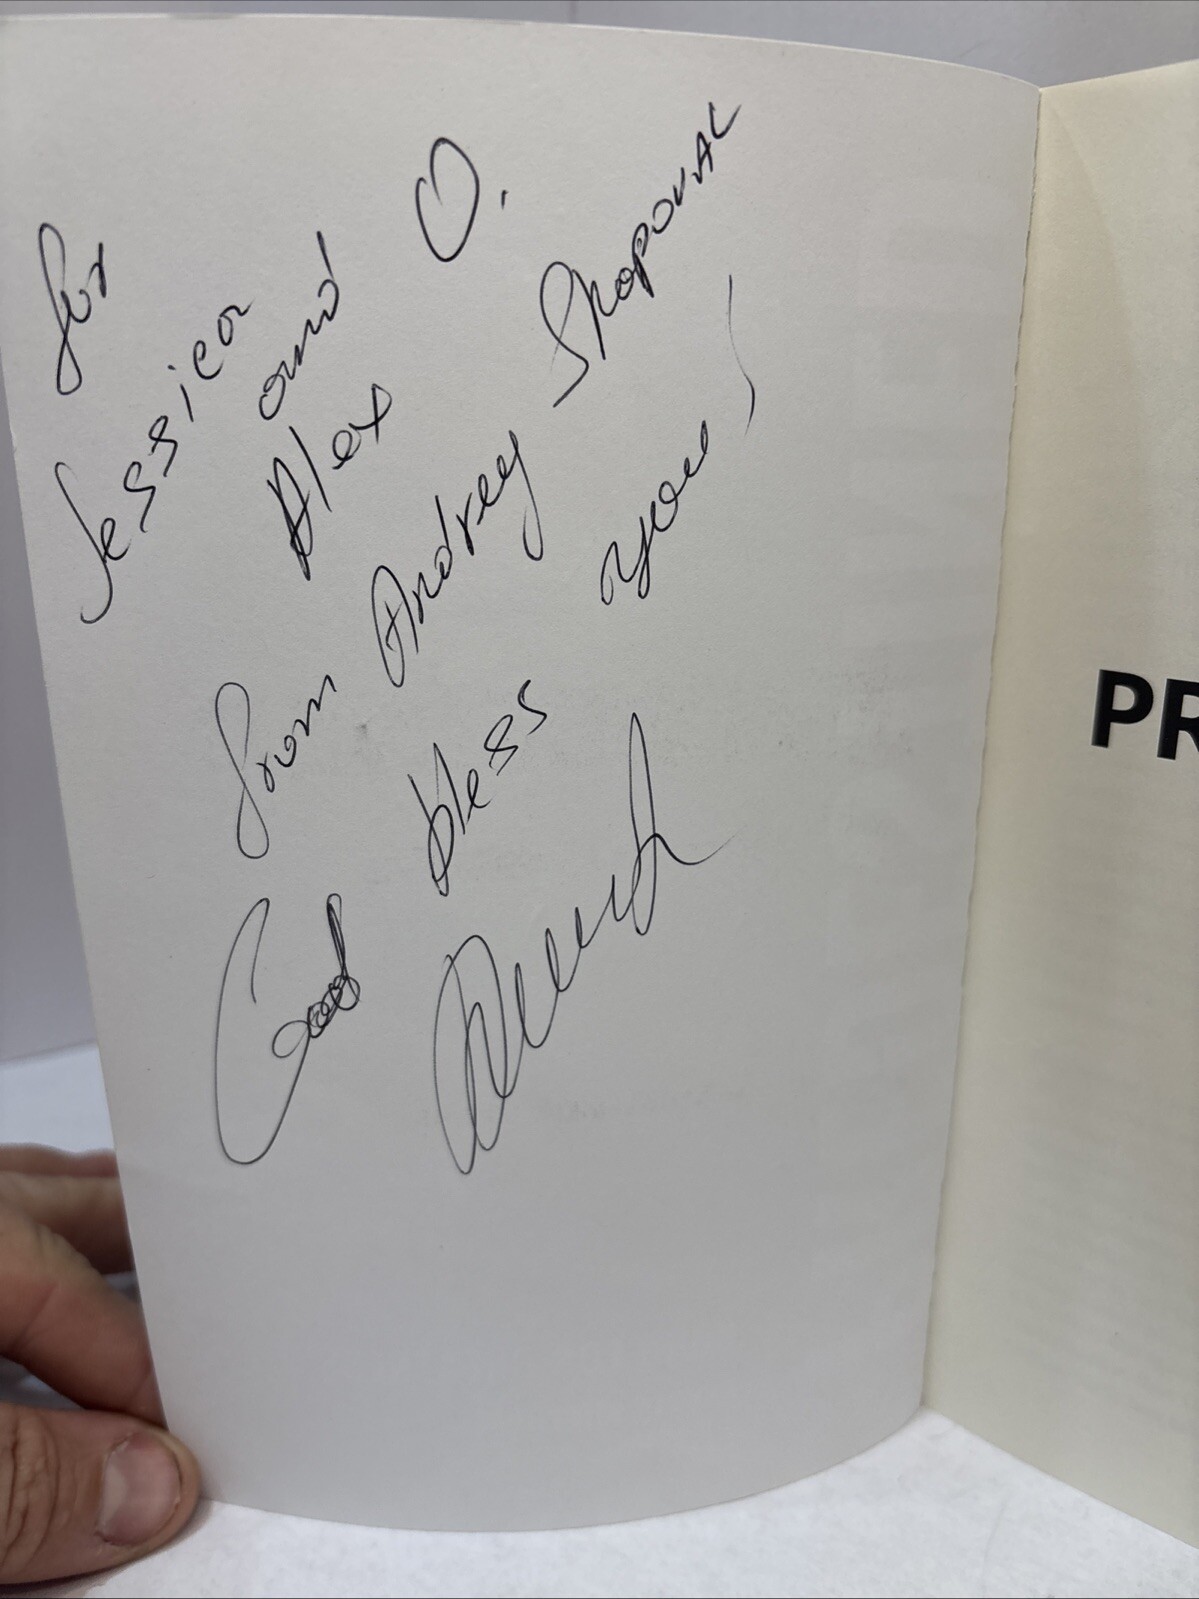 for
Jessica
and
Alex O.
from Andrey Shapoval
God bless you!
PR